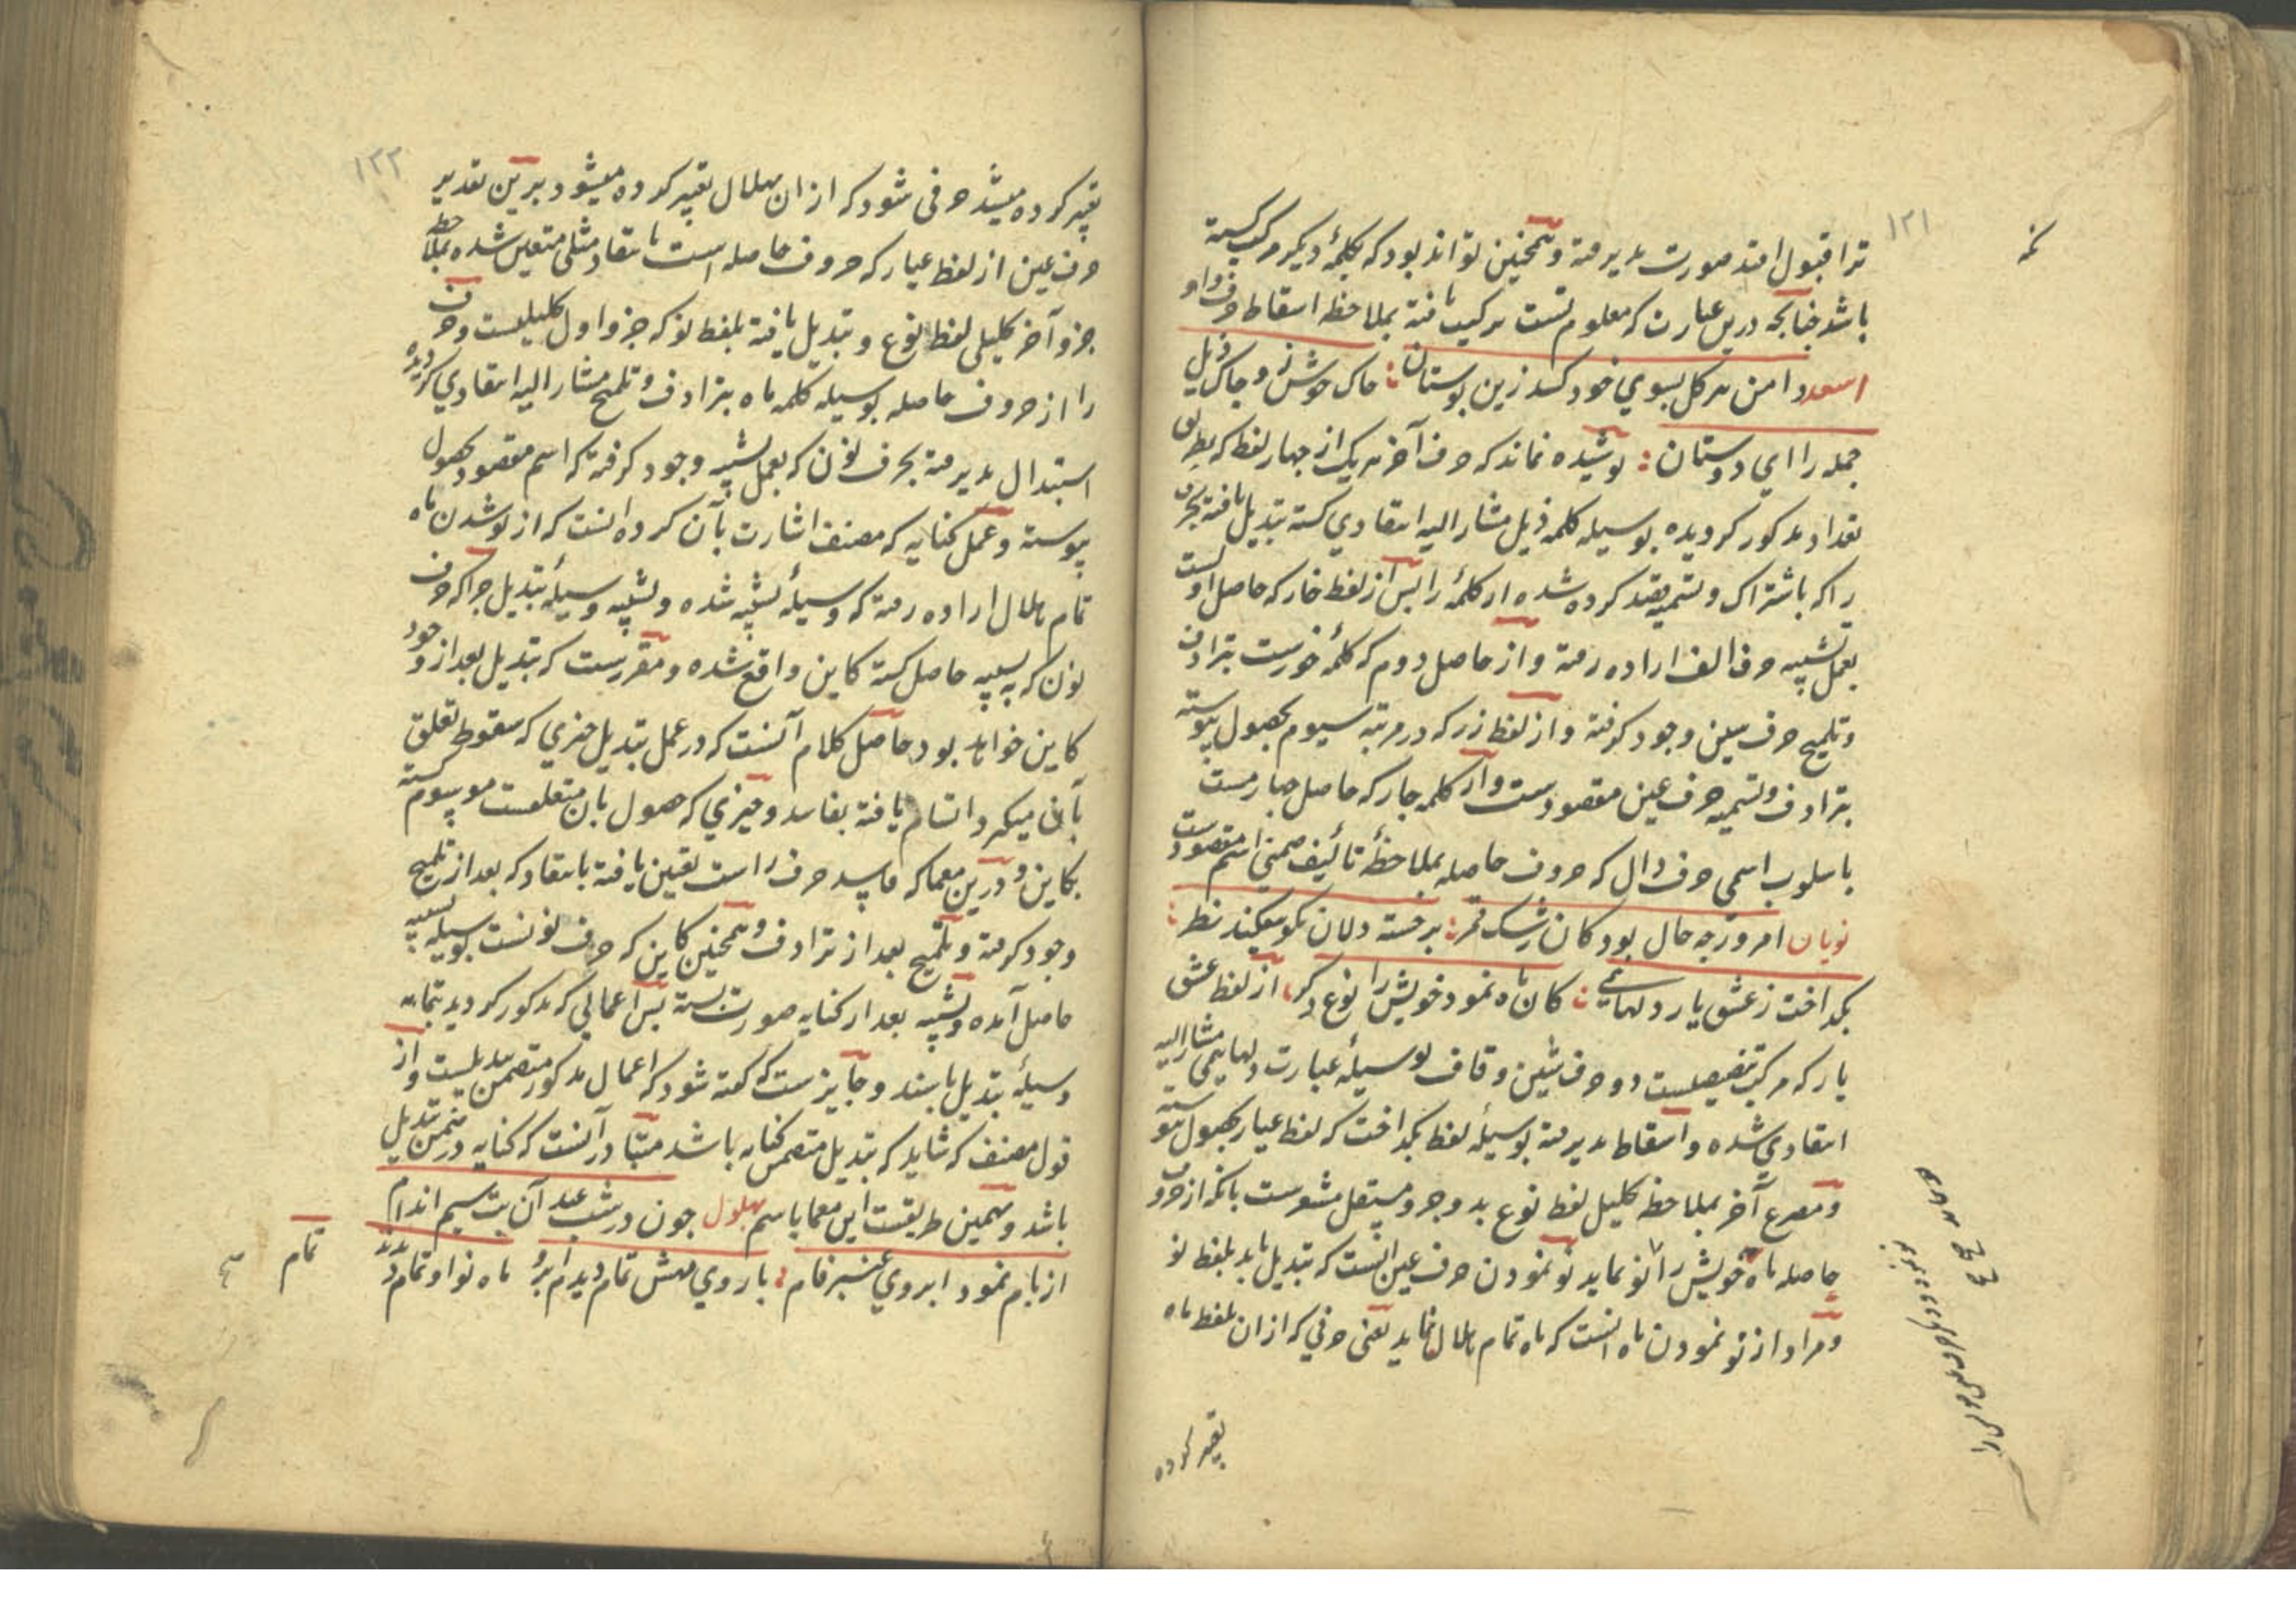 ۱۲۱
ترا قبول افتد صورت پذیرفته و همچنین تواند بود که بکلمهٔ دیکر مرکب کشته
باشد چنانچه درین عبارت که معلوم تست ترکیب یافته بملاحظه اسقاط حرف واو
اسعد دامن هر کل بسوی خود کشد زین بوستان خاک خوش و چاک ذیل
جمله را ای دوستان پوشیده نماند که حرف آخر هر یک از چهار لفظ که بطریق
تعداد مذکور کردیده بوسیله کلمه ذیل مشار الیه انتقادی کشته تبدیل یافته بحرف
را که باشتراک و تسمیه قصد کرده شده از کلمهٔ را پس از لفظ خار که حاصل اولست
بعمل تشبیه حرف الف اراده رفته و از حاصل دوم که کلمهٔ خورست بترادف
و تلمیح حرف سین وجود کرفته و از لفظ زر که در مرتبه سیوم بحصول پیوسته
بترادف و تسمیه حرف عین مقصودست و از کلمه چار که حاصل چهارمست
باسلوب اسمی حرف دال که حروف حاصله بملاحظهٔ تألیف ضمنی اسم مقصودست
نوبان امروز چه حال بود کان رشک قمر بر خسته دلان نکو میکند نظر
بکداخت ز عشق یار دلهای کان ماه نمود خویش را نوع دکر از لفظ عشق
یار که مرکب تفصیلست دو حرف شین و قاف بوسیلهٔ عبارت دلهایمی مشار الیه
انتقادی شده و اسقاط پذیرفته بوسیلهٔ لفظ بکداخت که لفظ عیار بحصول پیوسته
و مصرع آخر بملاحظه تحلیل لفظ نوع بدو جزو مستقل مشعرست بانکه از حروف
حاصله ماه خویش را نو نماید نو نمودن حرف عین انست که تبدیل یابد بلفظ نو
و مراد از نو نمودن ماه انست که ماه تمام هلال نماید یعنی حرفی که از ان بلفظ ماه
تعبیر کرده
۱۲۲
تعبیر کرده میشد حرفی شود که از ان بهلال تعبیر کرده میشود برین تقدیر
حرف عین از لفظ عیار که حروف حاصله است بانتقاد مثلی متعین شده بملاحظه
جزو آخر تحلیلی لفظ نوع و تبدیل یافته بلفظ نو که جزو اول تحلیلیست و حرف
را از حروف حاصله بوسیله کلمه ماه بترادف و تلمیح مشار الیه انتقادی کردیده
استبدال پذیرفته بحرف نون که بعمل تشبیه وجود کرفته که اسم مقصود بحصول
پیوسته و عمل کنایه که مصنف اشارت بآن کرده انست که از نو شدن ماه
تمام هلال اراده رفته که وسیلهٔ تشبیه شده و تشبیه وسیلهٔ تبدیل چرا که حرف
نون که به تشبیه حاصل کشته کاین واقع شده و مقررست که تبدیل بعد از وجود
کاین خواهد بود حاصل کلام آنست که در عمل تبدیل چیزی که سقوط تعلق
بآن میکیرد اتسام یافته بفاسد و چیزی که حصول بان متعلقست موسوم کشته
بکاین و درین معما که فاسد حرف راست تعین یافته بانتقاد که بعد از تلمیح
وجود کرفته و تلمیح بعد از ترادف و همچنین کاین که حرف نونست بوسیله تشبیه
حاصل آمده و تشبیه بعد از کنایه صورت بسته پس اعمالی که مذکور کردید بتمامه
وسیلهٔ تبدیل باشند و جایزست که کفته شود که اعمال مذکور متضمن تبدیلست و از
قول مصنف که شاید که تبدیل متضمن کنایه باشد متبادر آنست که کنایه در ضمن تبدیل
باشد و همین طریقست این معما باسم بهلول چون در شب عید آن بت سیم اندام
از بام نمود ابروی عنبر فام با روی مهش تمام دیدم ابرو ماه نو او تمام دیدند
تمام